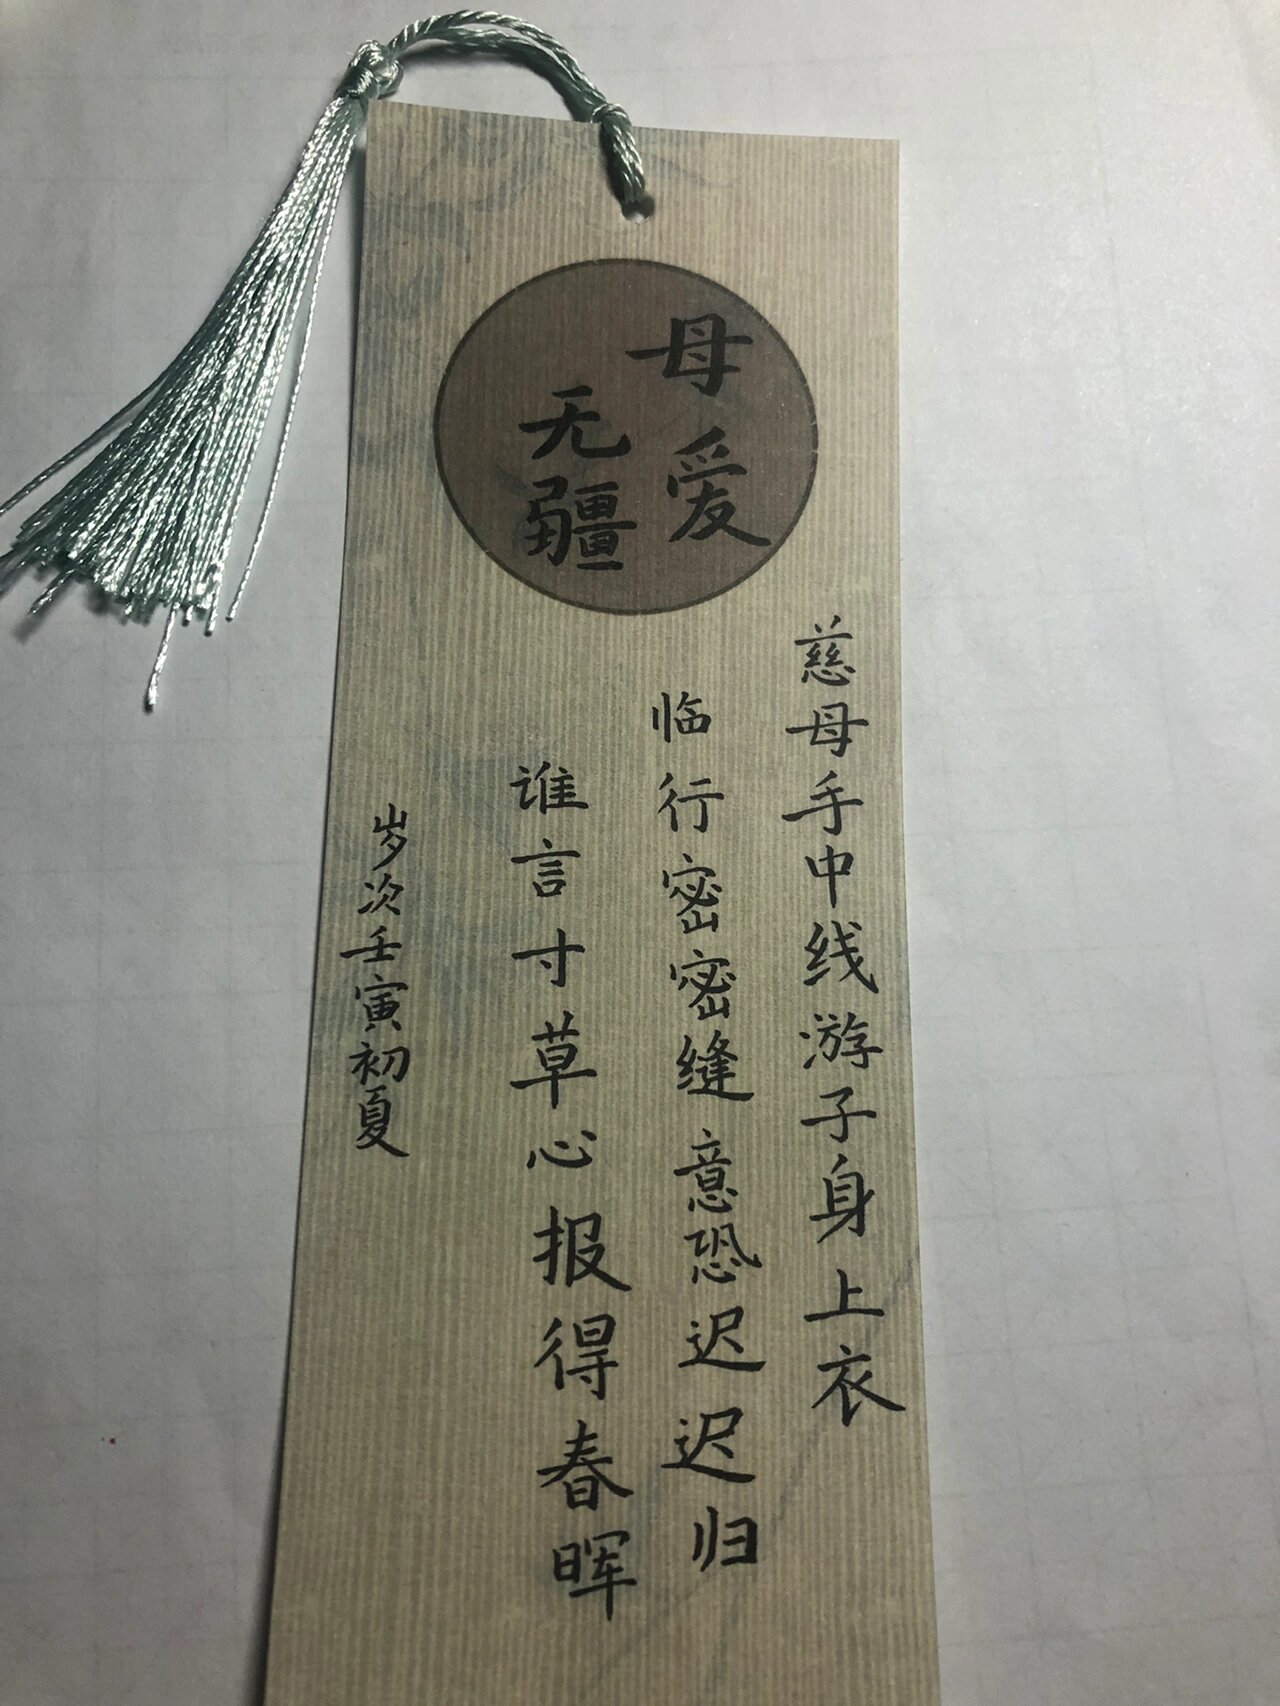 母爱
无疆
慈母手中线游子身上衣
临行密密缝意恐迟迟归
谁言寸草心报得春晖
岁次壬寅初夏